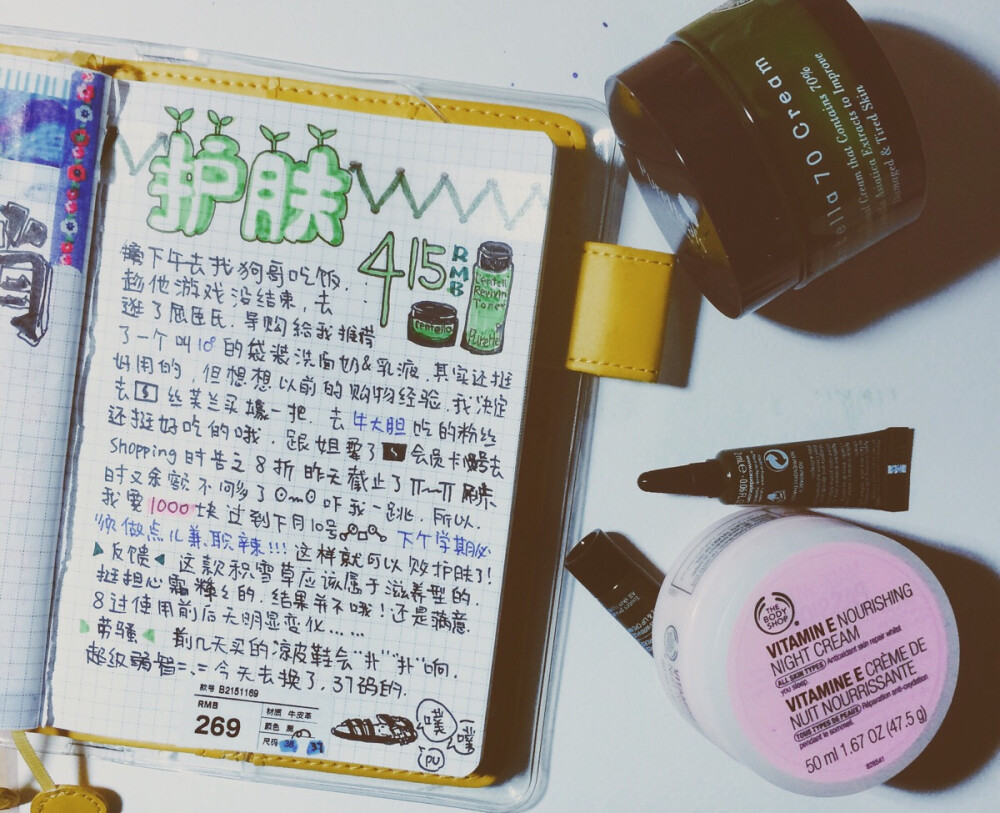 护肤
415
RMB
Centella
下午去找狗哥吃饭.
趁他游戏没结束,去
逛了屈臣氏.导购给我推荐
了一个叫10°的袋装洗面奶&乳液.其实还挺
好用的,但想想以前的购物经验.我决定
去 S 丝芙兰买 一把.去牛大胆吃的粉丝
还挺好吃的哦.跟姐要了 S 会员卡 号去
shopping时昔之8折昨天截止了π~π 刷来
时又余额不同多了⊙~⊙ 吓我一跳.所以.
我要1000块过到下月10号
下个学期必
须做点儿兼职辣!!!这样就可以败护肤了!
反馈 这款积雪草应该属于滋养型的.
挺担心霜 的.结果并不哦!还是满意.
8过使用前后无明显变化......
劳骚 前几天买的凉皮鞋会"扑""扑"响.
超级弱智=.=今天去换了.37码的.
款号 B2151169
RMB
269
材质 牛皮革
颜色 黑
尺码 38 37
噗
噗
pu
tella 70 Cream
Cream that Contains 70%
Extracts to Improve
Damaged & Tired Skin
THE BODY SHOP
VITAMIN E NOURISHING
NIGHT CREAM
ALL SKIN TYPES Antioxidant skin repair whilst
you sleep.
VITAMINE E CRÈME DE
NUIT NOURRISSANTE
TOUS TYPES DE PEAUX Réparation anti-oxydation
pendant le sommeil.
50 ml 1.67 OZ (47.5 g)